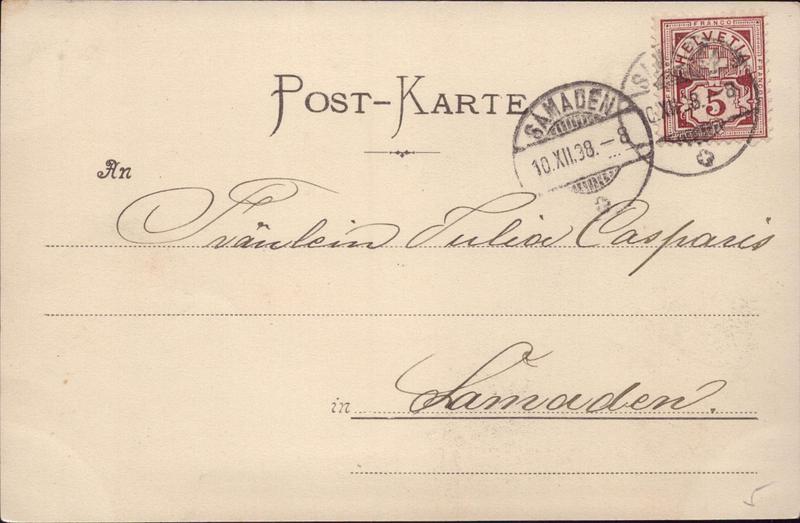 FRANCO
HELVETIA
FRANCO
5
POST-KARTE
SAMADEN
10.XII.98.-8
An
Fräulein Julia Casparis
in Samaden.
5